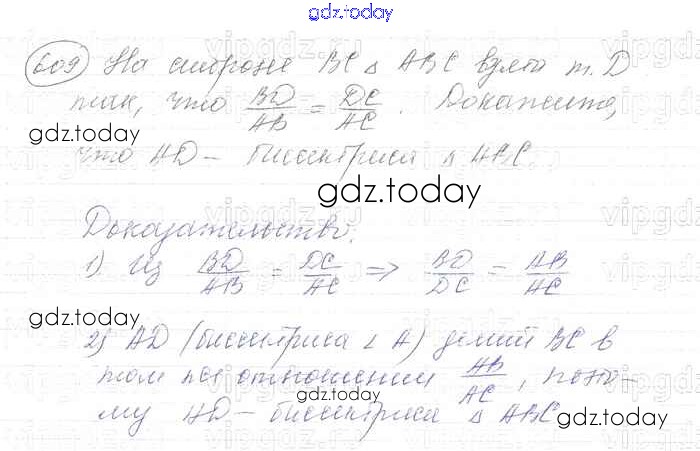 gdz.today
609 На стороне BC △ ABC взята т. D
так, что BD/AB = DC/AC. Докажите,
gdz.today
что AD – биссектриса △ ABC.
gdz.today
Доказательство:
1) Из BD/AB = DC/AC ⇒ BD/DC = AB/AC
gdz.today
2) AD (биссектриса ∠ A) делит BC в
том же отношении AB/AC, поэто-
gdz.today
му AD – биссектриса △ ABC
gdz.today